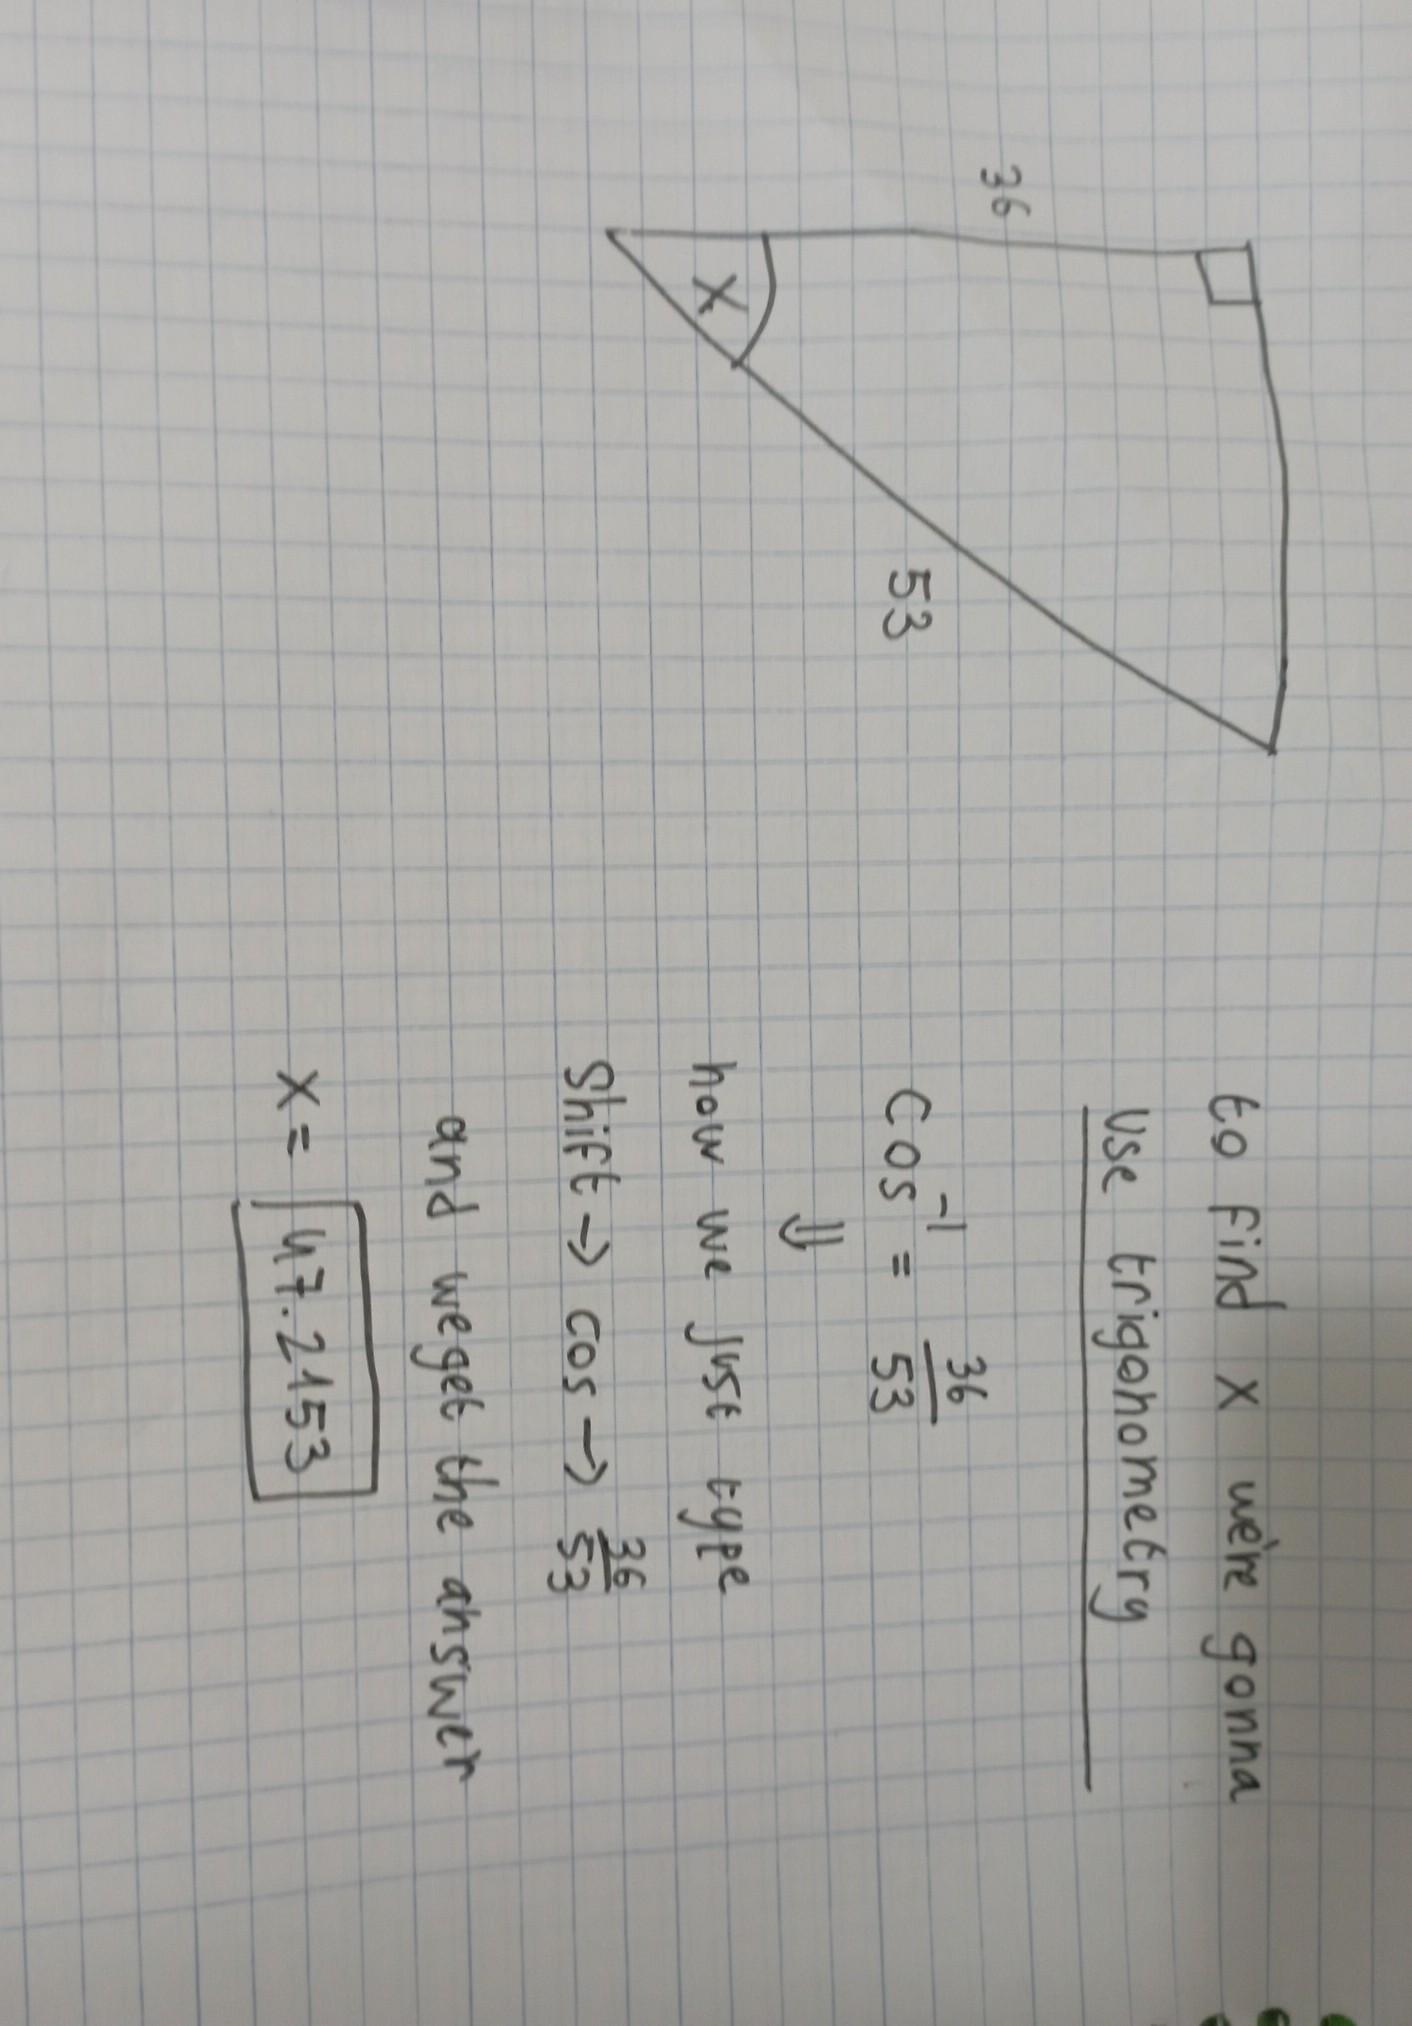 36
X
53
to find X we're gonna
use trigonometry
Cos⁻¹ = 36/53
⇓
now we just type
Shift → cos → 36/53
and we get the answer
X = 47.2153